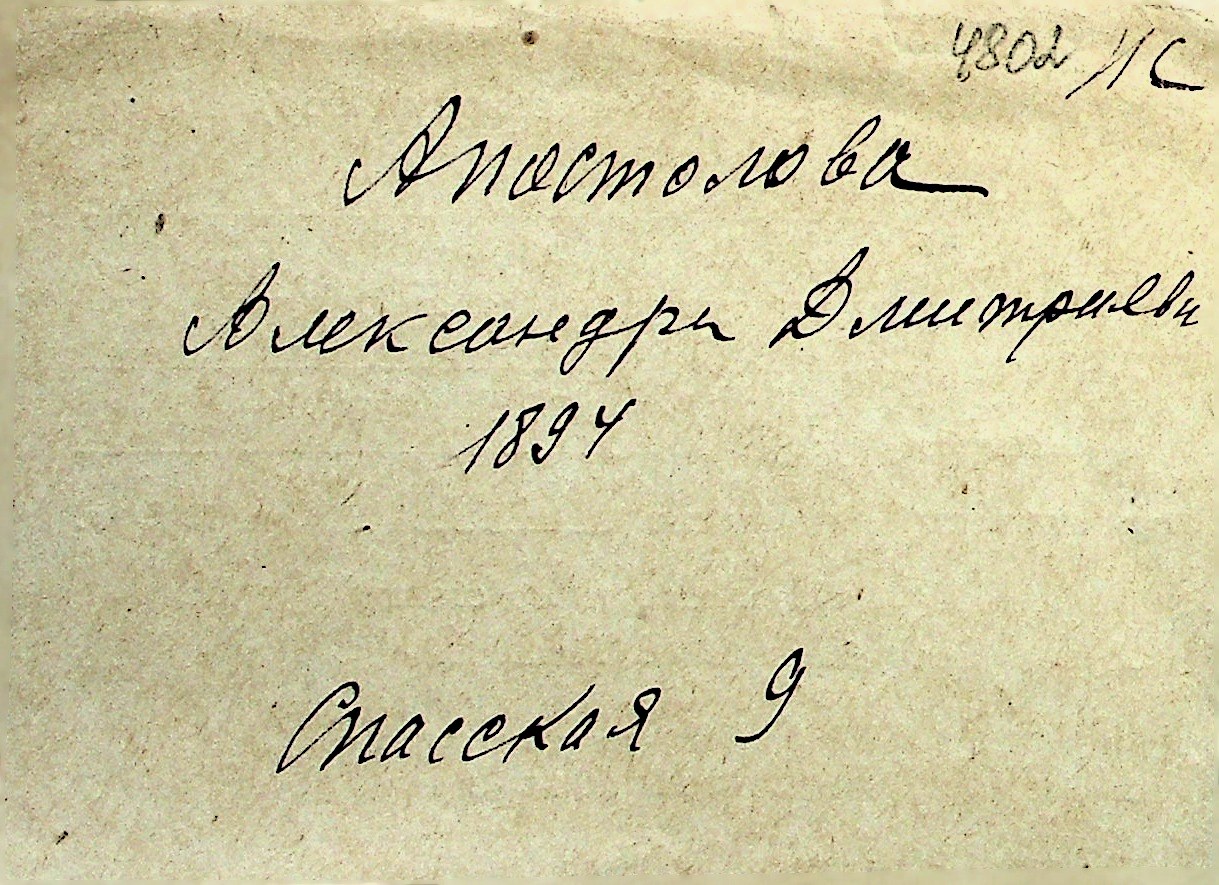 4802 ИС
Апостолова
Александра Дмитриевн
1894
Спасская 9